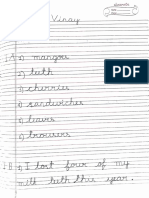 Vinay
1. A. 1) mangoes
2) teeth
3) cherries
4) sandwiches
5) leaves
6) trousers
2. B. 1) I lost four of my
milk teeth this year.